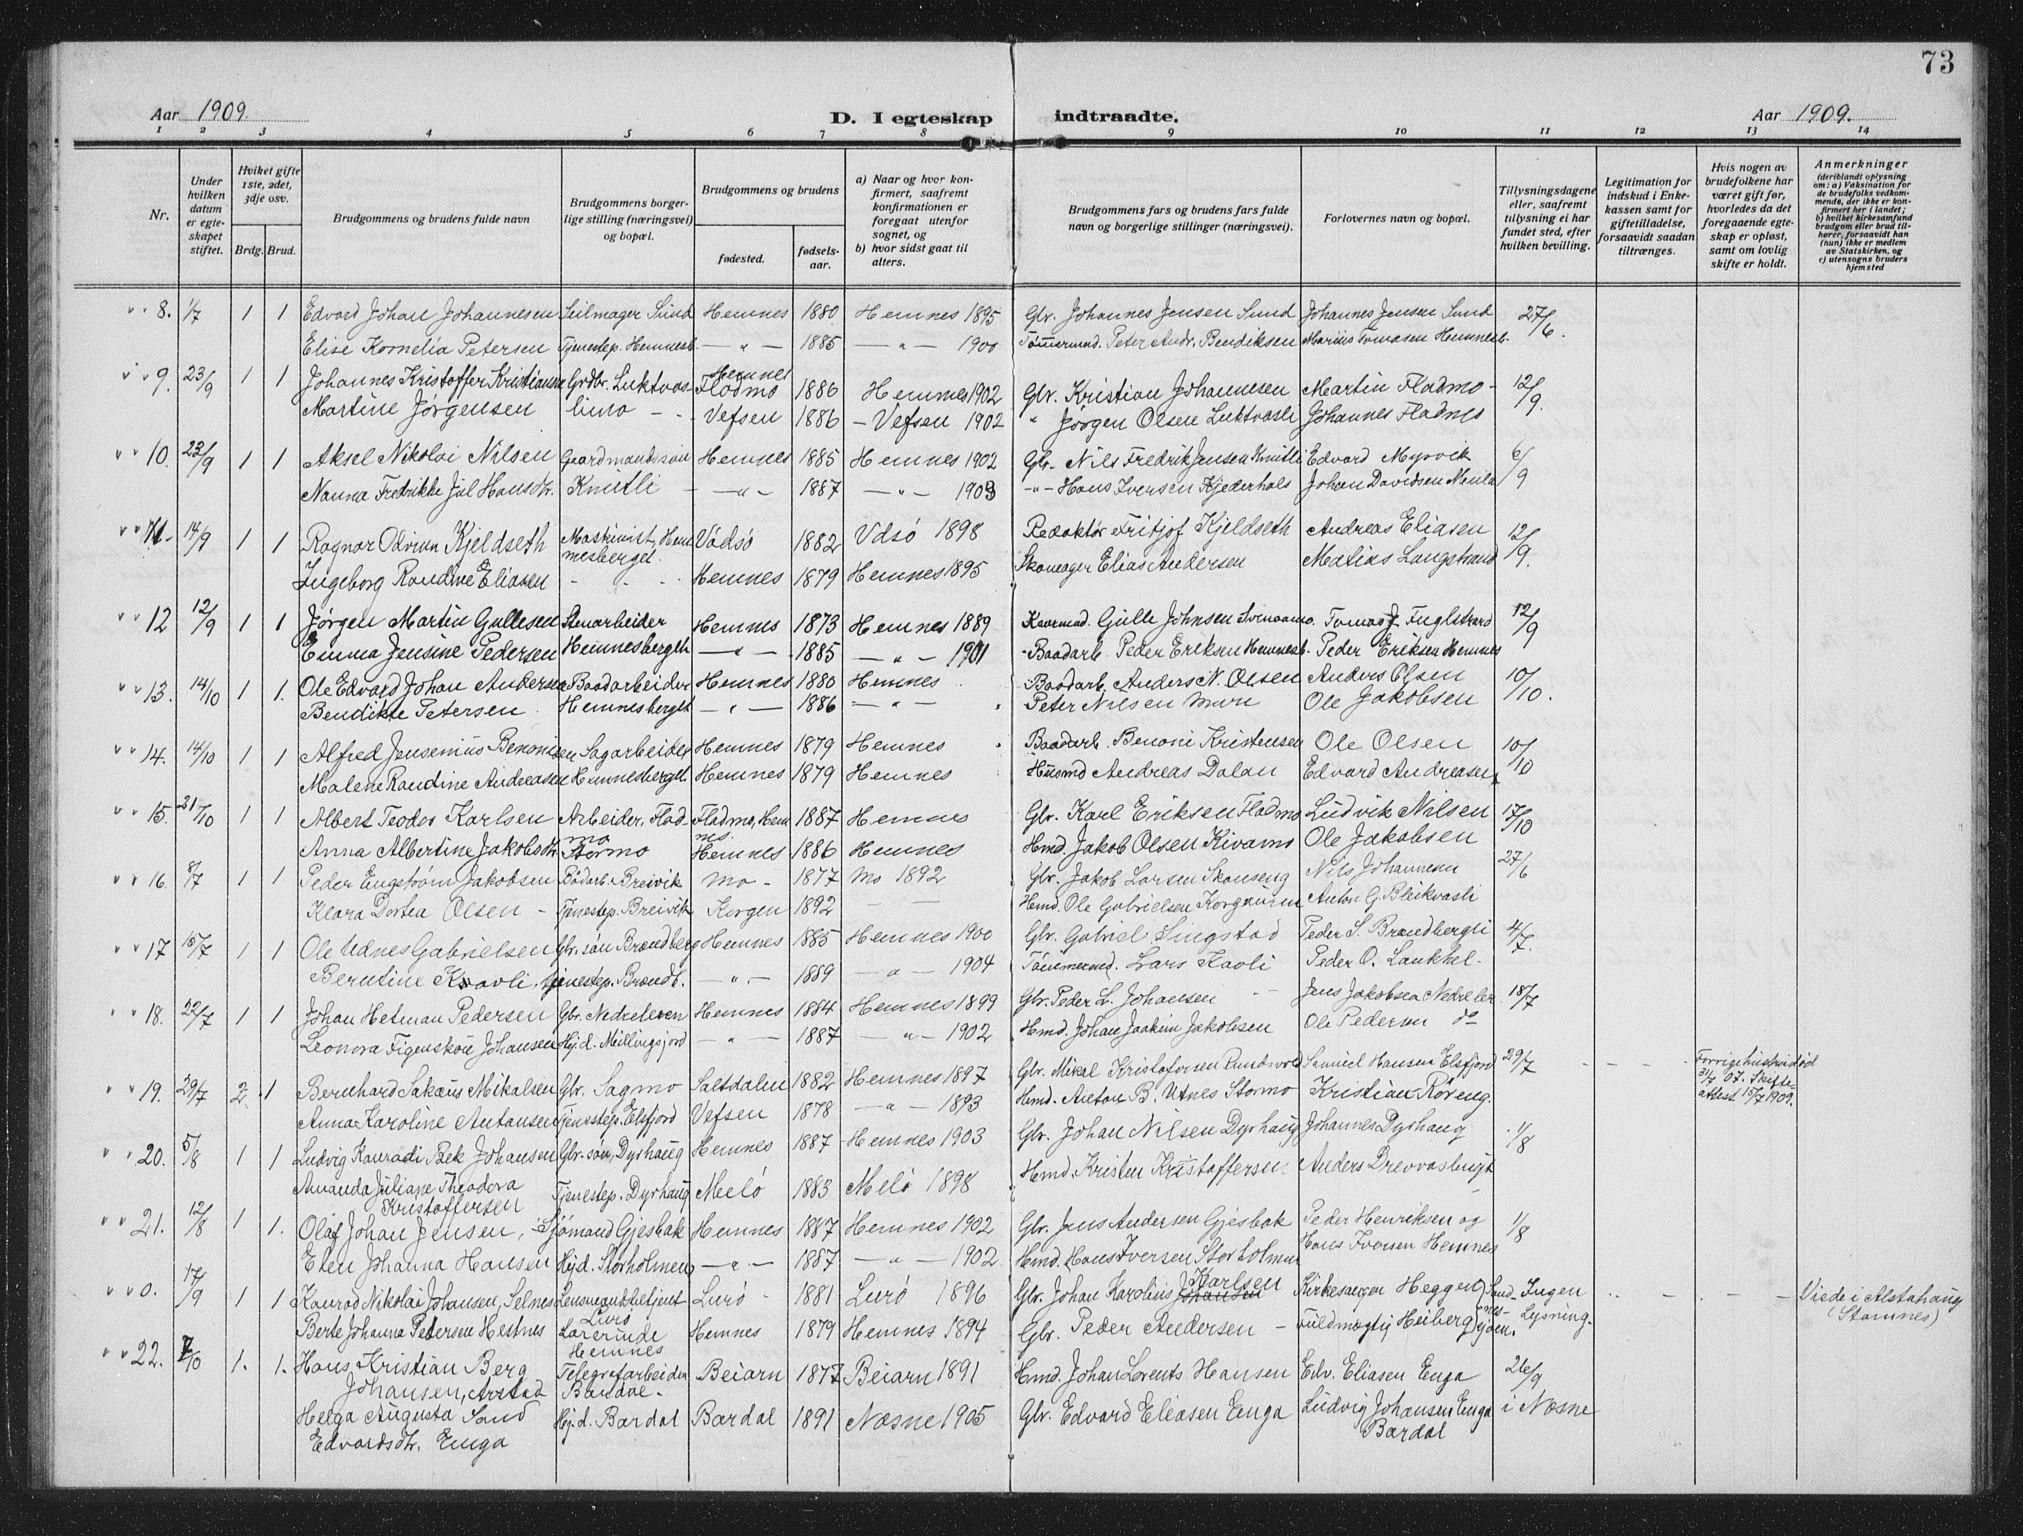 73
Aar 1909. D. I egteskap indtraadte. Aar 1909.
1 2 3 4 5 6 7 8 9 10 11 12 13 14
Nr.
Under hvilken datum er egteskapet stiftet.
Hviket gifte 1ste, 2det, 3dje osv.
Brdg. Brud.
Brudgommens og brudens fulde navn
Brudgommens borgerlige stilling (næringsvei) og bopæl.
Brudgommens og brudens
fødested. fødselsaar.
a) Naar og hvor konfirmert, saafremt konfirmationen er foregaat utenfor sognet, og
b) hvor sidst gaat til alters.
Brudgommens fars og brudens fars fulde navn og borgerlige stillinger (næringsvei).
Forlovernes navn og bopæl.
Tillysningsdagene eller, saafremt tillysning ei har fundet sted, efter hvilken bevilling.
Legitimation for indskud i Enkekassen samt for giftetilladelse, forsaavidt saadan tiltrænges.
Hvis nogen av brudefolkene har været gift før, hvorledes da det foregaaende egteskap er opløst, samt om lovlig skifte er holdt.
Anmerkninger (deriblandt oplysning om: a) Vaksination for de brudefolks vedkommende, der ikke er konfirmert her i landet; b) hvilket kirkesamfund brudgom eller brud tilhører, forsaavidt han (hun) ikke er medlem av Statskirken, og c) utensogns bruders hjemsted
" " 8. 1/7 1 1 Edvard Johan Johannesen Seilmager Sund Hemnes 1880 Hemnes 1895 Gbr. Johannes Jensen Sund Johannes Jensen Sund 27/6.
Elise Kornelia Petersen Tjenestep. Hemnesb. — " — 1885 — " — 1900 Tømmermd. Peter Andr. Bendiksen Marius Tomasen Hemnesb.
" " 9. 23/9 1 1 Johannes Kristoffer Kristiansen Grdbr. Luktvas- Hemnes Flodmo 1886 Hemnes 1902 Gbr. Kristian Johannesen Martin Fladmo - 12/9.
Martine Jørgensen limo - - Vefsen 1886 - Vefsen 1902 " Jørgen Olsen Luktvasli Johannes Fladmo
" " 10. 23/9 1 1 Aksel Nikolai Nilsen Gaardmandssøn Hemnes 1885 Hemnes 1902 Gbr. Nils Fredrik Jensen Knutli Edvard Myrvik 6/9
Nanna Fredrikke Jul Hansdtr. Knutli — " — 1887 — " — 1903 - " - Hans Iversen Kjederhals Johan Davidsen
" " 11. 14/9 1 1 Ragnar Odvin Kjeldseth Maskinist, Hemnesberget. Vadsø 1882 Vdsø 1898 Redaktør Fritjof Kjeldseth Andreas Eliasen 12/9.
Ingeborg Randine Eliasen - - - Hemnes 1879 Hemnes 1895 Skomager Elias Andersen Matias Langstrand
" " 12 12/9 1 1 Jørgen Martin Gullesen Stenarbeider Hemnes 1873 Hemnes 1889 Gulle Johnsen Tomas J Fuglstrand 12/9
Emma Jensine Pedersen Hemnesberget — " — 1885 — " — 1901 - Baadarb. Peder Eriksen Hemnesb. Peder Eriksen Hemnes
" " 13. 14/10 1 1. Ole Edvard Johan Andersen Baadarbeider Hemnes 1880 Hemnes - Baadarb. Anders N. Olsen Anders Olsen 10/10.
Bendikte Petersen Hemnesberget — " — 1886 — " — Peter Nilsen Ole Jakobsen
" " 14. 14/10 1 1 Alfred Jensenius Benonisen Sagarbeider Hemnes 1879 Hemnes Baadarb. Benoni Kristensen Ole Olsen 10/10
Malene Randine Andreasen Hemnesberget Hemnes 1879 Hemnes Husmd Andreas Dalan Edvard Andreasen
" " 15. 21/10 1 1 Albert Teodor Karlsen Arbeider, Fladmo Fladmo, Hemnes. 1887 Hemnes Gbr. Karl Eriksen Fladmo Ludvik Nilsen 17/10
Anna Albertine Jakobsdtr. Stormo Hemnes 1886 Hemnes Hmd. Jakob Olsen Ole Jakobsen
" " 16. 8/7 1 1 Peder Engstrøm Jakobsen Bådarb. Breivik Mo - 1877 Mo 1892 Gbr. Jakob Larsen Skonseng Nils Johannesen 27/6
Klara Dortea Olsen - Tjenestep. Breivik Korgen 1892 — — Hmd. Ole Gabrielsen Anton G. Bleikvasli
" " 17 15/7 1 1 Ole Utnes Gabrielsen Gbr. søn Brændberg Hemnes 1885 Hemnes 1900 Gbr. Gabriel Lingstad Peder S. Brandbergli 4/7.
Berntine Kravli Tjenestep. Brændb. — " — 1889 — " — 1904 Tømmermd. Lars Kavli Peder O.
" " 18. 22/7 1 1 Johan Hetman Pedersen Gbr. Nedreleren Hemnes 1884 Hemnes 1899 Gbr. Peder L. Johansen Jens Jakobsen Nedreler 18/7
Leonora Figenskou Johansen Hjd. Millingsjord — " — 1887 — " — 1902 Hmd. Johan Joakim Jakobsen Ole Pedersen do
" " 19. 29/7 2. 1 Bernhard Sakæus Mikalsen Gbr. Sagmo Saltdalen 1882 Hemnes 1897 Gbr. Mikal Kristofersen Samuel Hansen Elsfjord 29/7 — — Forrige hustru død 31/7 07. Skifteattest 15/7 1909.
Anna Karoline Antonsen Tjenestep. Elsfjord Vefsen 1878 — " — 1893 Hmd. Anton B. Utnes Stormo Kristian Røreng.
" " 20. 5/8 1 1 Ludvig Konradi Bek Johansen Gbr. søn, Dyrhaug Hemnes 1887 Hemnes 1903 Gbr. Johan Nilsen Dyrhaug Johannes Dyrhaug 1/8
Amanda Juliane Theodora Kristoffersen Tjenestep. Dyrhaug Melø 1883 Melø 1898 Hmd. Kristen Kristoffersen. Anders Drevvasbugt
" " 21. 12/8 1 1. Olaf Johan Jensen, Sjømand Gjesbak Hemnes 1887 Hemnes 1902 Gbr. Jens Andersen Gjesbak Peder Henriksen og 1/8
Elen Johanna Hansen Hjd. Storholmen — " — 1887 — " — 1902 Hmd. Hans Iversen Storholmen Hans Iversen Hemnes
" " 0. 17/9 1 1 Konrad Nikolai Johansen, Selnes Lensmandsbetjent Lurø Lurø 1881 Lurø 1896 Gbr. Johan Karolius Johansen Karlsen Kirkesanger Heggen Ingen Lysning. — — — — Viede i Alstahaug (Stamnes)
Berte Johanna Petersen Hestnes Lærerinde Hemnes Hemnes 1879 Hemnes 1894 Gbr. Peder Andersen - Fuldmægtig Heiberg
" " 22. 7/10 1. 1. Hans Kristian Berg Johansen, Arstad Telegrafarbeider Bardal. Beiarn 1877 Beiarn 1891 Hmd. Johan Lorents Hansen Edv. Eliasen Enga 26/9
Helga Augusta Sand Edvardsdtr. Enga Hjd. Bardal Bardal 1891 Næsne 1905 Gbr. Edvard Eliasen Enga Ludvig Johansen Enga Bardal i Næsne